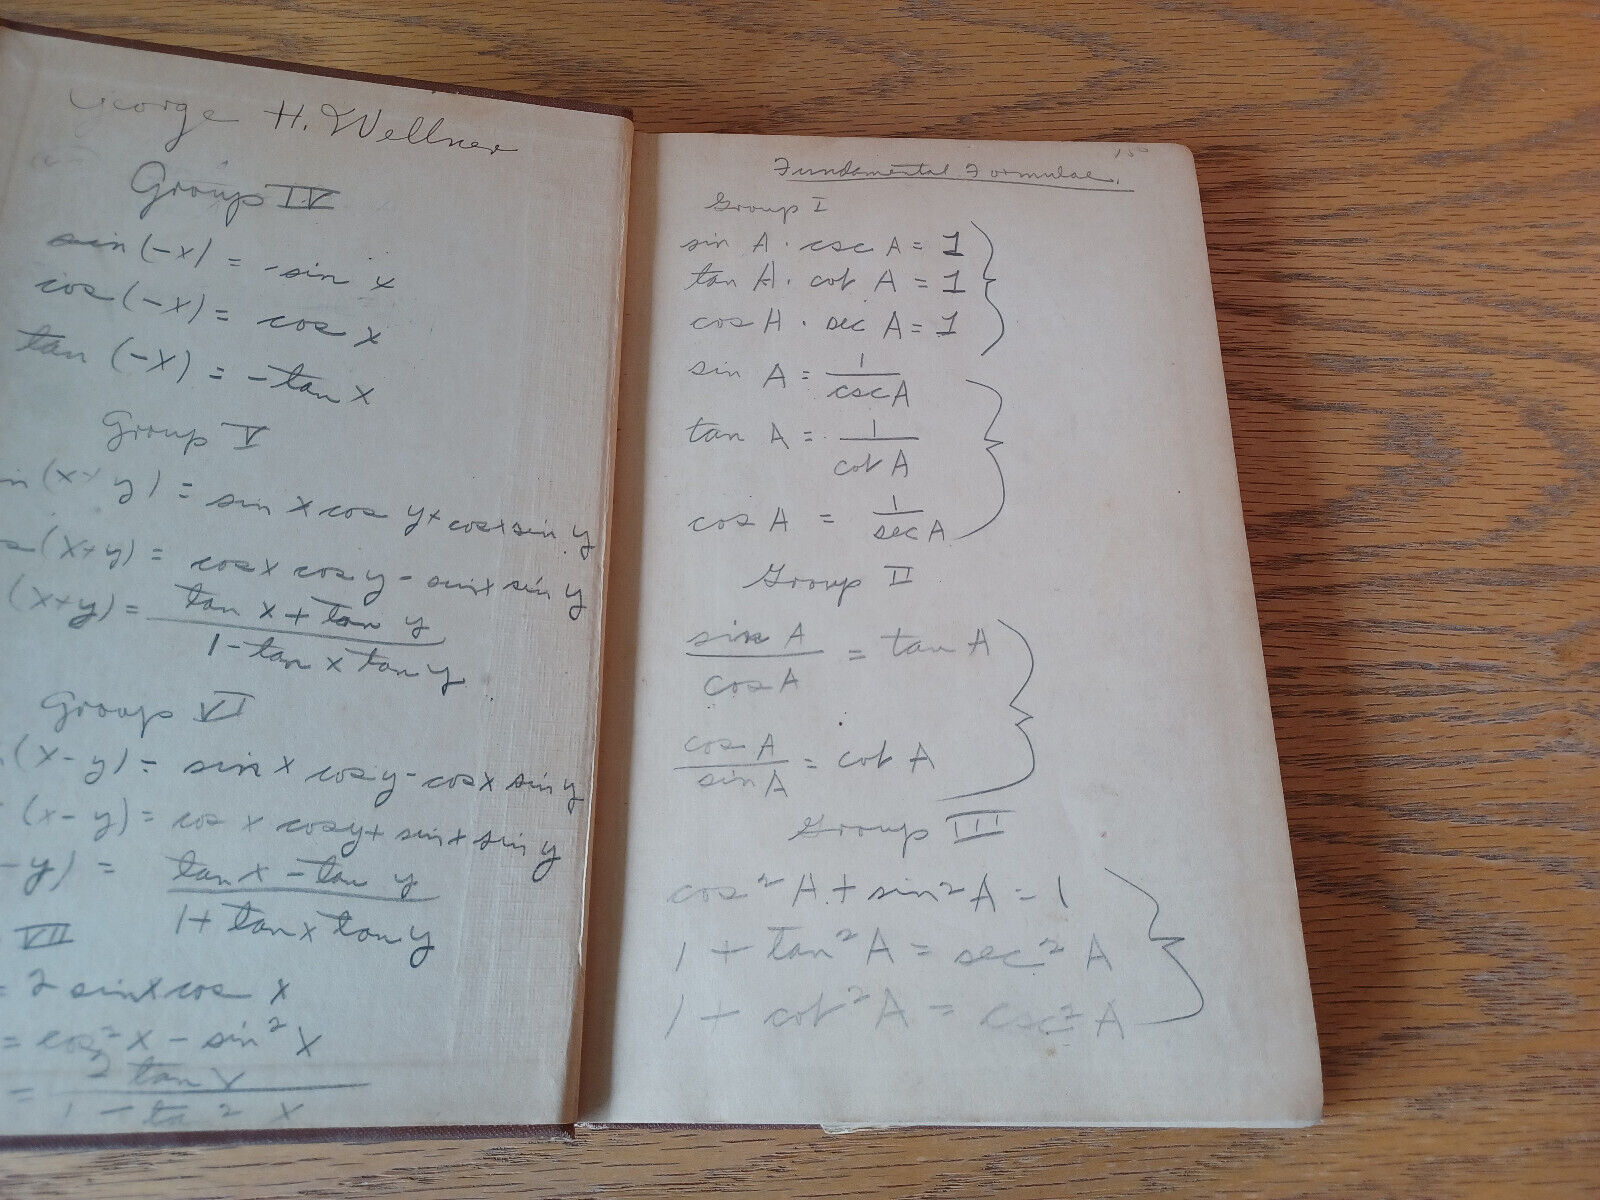 George H. Wellner
Group IV
sin (-x) = -sin x
cos (-x) = cos x
tan (-x) = -tan x
Group V
in (x+y) = sin x cos y + cos x sin y
s (x+y) = cos x cos y - sin x sin y
(x+y) = tan x + tan y
1 - tan x tan y
Group VI
(x-y) = sin x cos y - cos x sin y
(x-y) = cos x cos y + sin x sin y
-y) = tan x - tan y
1 + tan x tan y
VII
= 2 sin x cos x
= cos² x - sin² x
= 2 tan x
1 - ta ² x
150
Fundamental Formulae.
Group I
sin A · csc A = 1
tan A · cot A = 1
cos A · sec A = 1
sin A = 1
csc A
tan A = 1
cot A
cos A = 1
sec A
Group II
sin A
cos A = tan A
cos A
sin A = cot A
Group III
cos² A + sin² A = 1
1 + tan² A = sec² A
1 + cot² A = csc² A